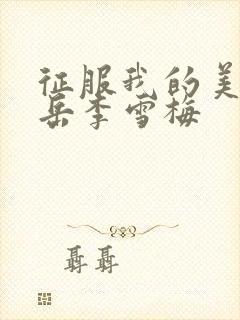 征服我的美
岳李雪梅
聶聶